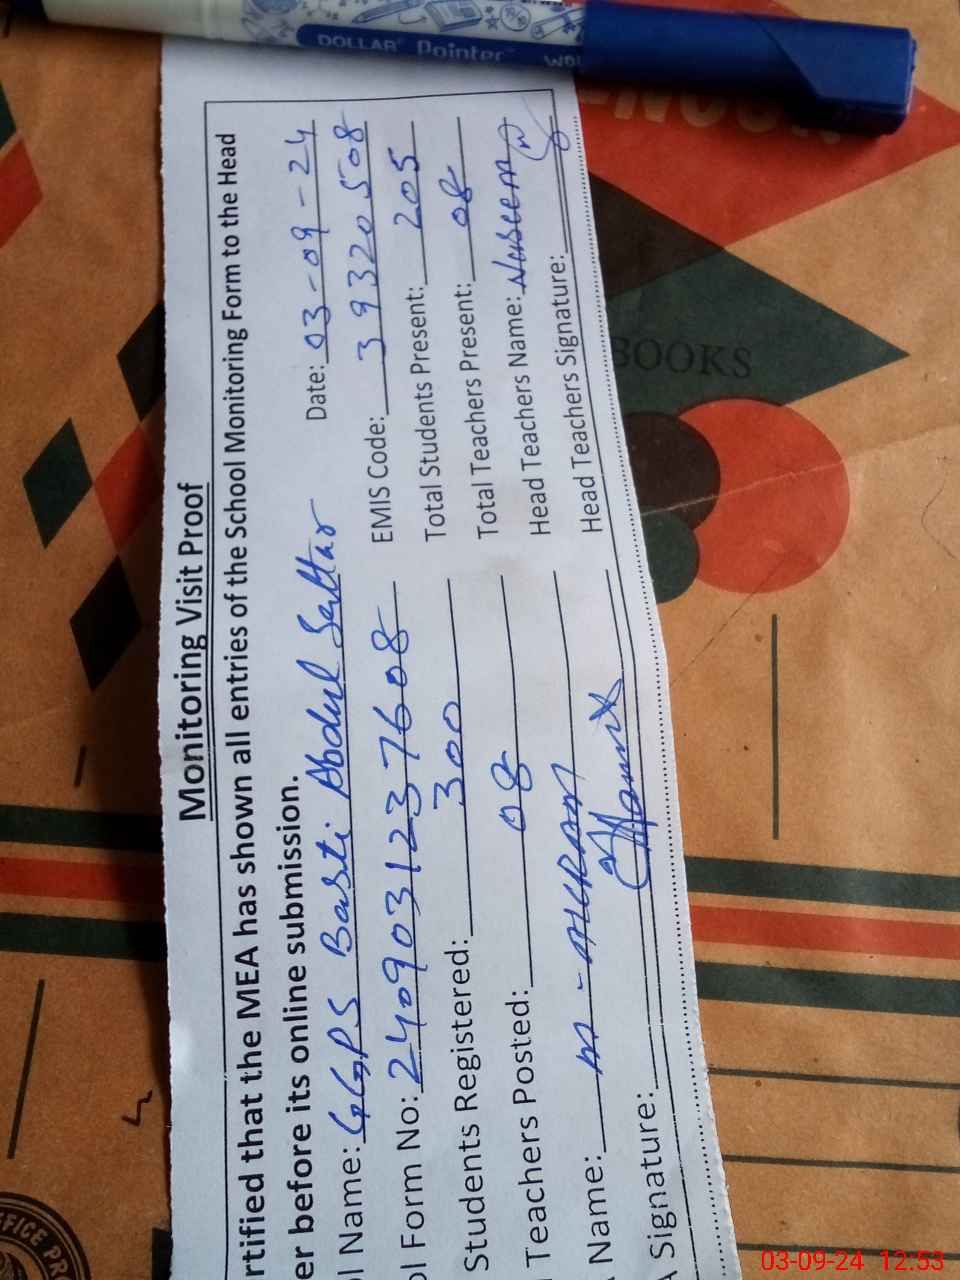 Monitoring Visit Proof
rtified that the MEA has shown all entries of the School Monitoring Form to the Head
er before its online submission.
Date: 03-09-24
l Name: GGPS Basti Abdul Sattar
EMIS Code: 39320508
ol Form No: 2409031237608
Total Students Present: 205
Students Registered: 300
Total Teachers Present: 08
Teachers Posted: 08
Head Teachers Name: Naseem
Name: M-AKRAM
Head Teachers Signature:
Signature:
DOLLAR Pointer
BOOKS
FFICE PR
03-09-24 12:53